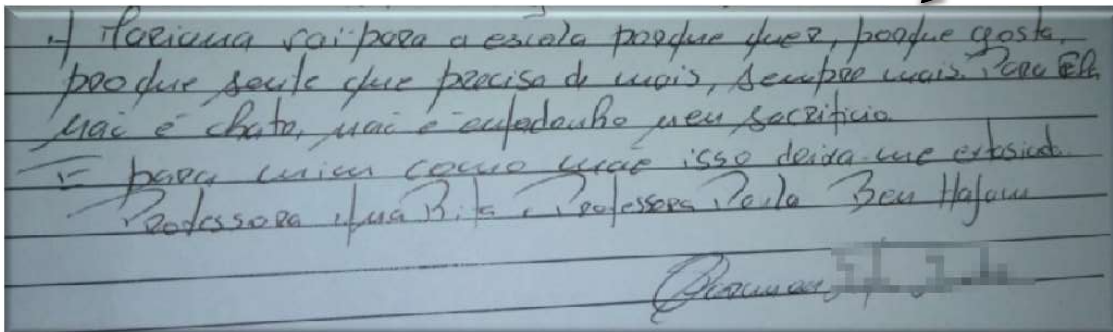 A Mariana vai para a escola porque quer, porque gosta,
porque sente que precisa de mais, sempre mais. Para Ela
não é chato, não é enfadonho nem sacrifício.
E para mim como mãe isso deixa-me extasiada.
Professora Ana Rita e Professora Paula Bem Hajam